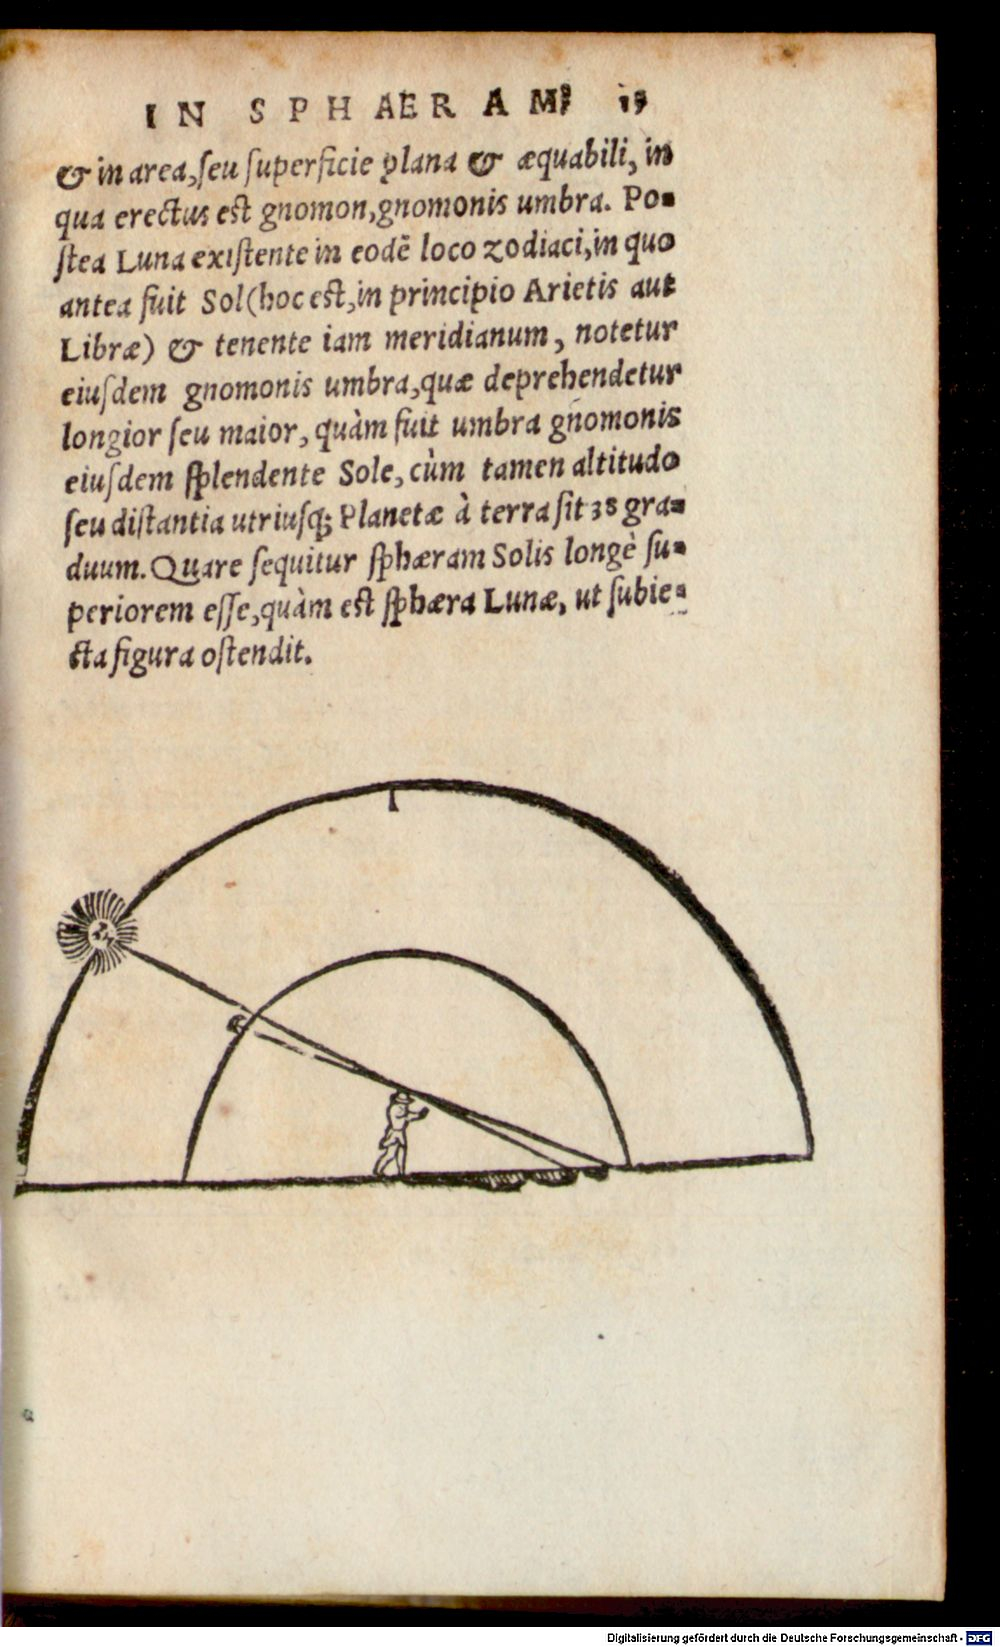 IN SPHAERAM. 15
& in area, ſeu ſuperficie plana & æquabili, in
qua erectus eſt gnomon, gnomonis umbra. Po-
ſtea Luna exiſtente in eodē loco zodiaci, in quo
antea fuit Sol (hoc eſt, in principio Arietis aut
Libræ) & tenente iam meridianum, notetur
eiuſdem gnomonis umbra, quæ deprehendetur
longior ſeu maior, quàm fuit umbra gnomonis
eiuſdem ſplendente Sole, cùm tamen altitudo
ſeu diſtantia utriuſq; Planetæ à terra ſit 38 gra-
duum. Quare ſequitur ſphæram Solis longè ſu-
periorem eſſe, quàm eſt ſphæra Lunæ, ut ſubie-
cta figura oſtendit.
Digitalisierung gefördert durch die Deutsche Forschungsgemeinschaft - DFG